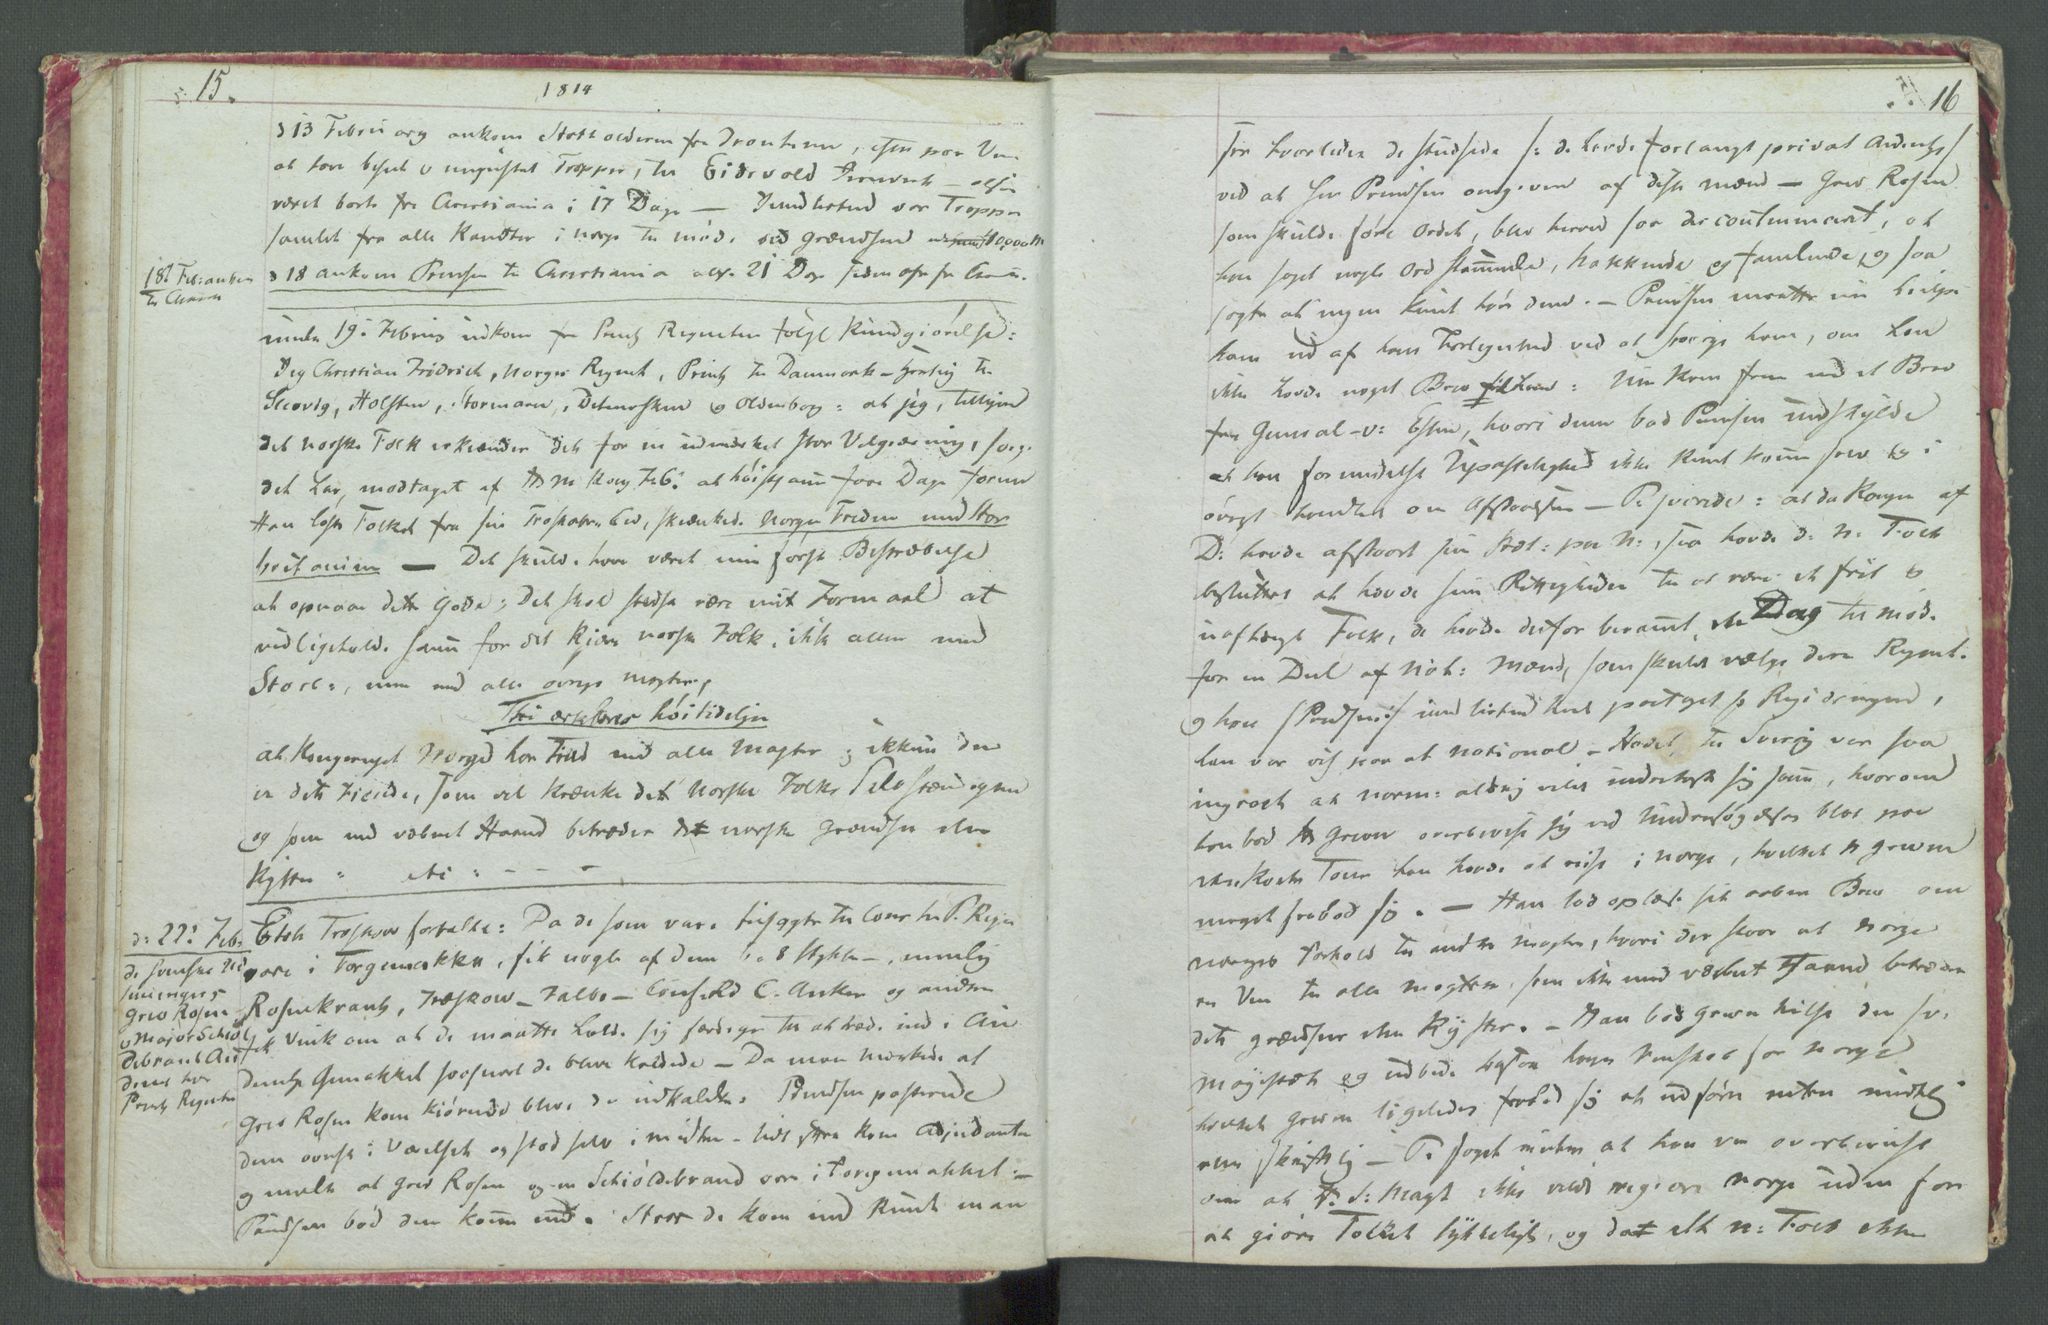 15.
1814
d 13 Februarij ankom Statholderen fra Trontheim, efter paa Veien
at have beseet v mynstret Tropper, til Eidsvold Jernverk – altsaa
været borte fra Christiania i 17 Dage – Imidlertid var Tropper
samlet fra alle Kandter i Norge til møde ved Grændsen 10,000 M
d 18 ankom Prinsen til Christiania
18d Feb: ankom
til Chania
under 19de Febru udkom fra Printz Regenten følge Kundgiørelse:
Jeg Christian Fridrich, Norges Regent, Prints til Danmark – Hertug til
Slesvig, Holsten, Stormarn, Ditmersken og Oldenborg: at jeg, tilligemed
det norske Folk erkiender det for en udmærket stor Velgierning, som
det har modtaget af Kong Fr. 6: at høistsamme faae Dage forend
Han løste Folket fra sin Troskabs Eed, skienkede Norge Freden med Stor
britanien — Det skulde have været min første Bestræbelse
at opnaae dette Gode; det skal stedse være mit Formaal at
vedligeholde samme for det kiære norske Folk, ikke alene med
Storb:, men med alle øvrige Magter,
Thi erklæres høitideligen
at Kongeriget Norge har Fred med alle Magter; ikkun den
er dets Fiende, som vil krænke det Norske Folks Selvstændighed
og som med væbnet Haand betræder det norske Grændser eller
Kyster – etc: – – –
d: 22: Feb.
de svenske Ud
sendinger
Grev Rosen
v Major Schiøl
debrand Audi
dens hos
Prints Regenten
Etsr Treschow fortalte: Da de som vare tilsagte til Cour hos P. Regen
vare i Forgemakket, fik nogle af dem ca 8 Stykker –, nemlig
Rosenkrants, Treschow – Falbe – Confrd C. Anker og andre
fik Vink om at de maatte holde sig færdige til at træde ind i Au
dients Gemakket saasnart de bleve kaldede – Da man mærkede at
Grev Rosen kom kiørende bleve de indkaldte. Prindsen posterede
dem øverst i Værelset og stod selv i midten – lidt efter kom Adjudanten
og meldte at Grev Rosen og en Schiöldebrand vare i Forgemakket –
Prindsen bød dem komme ind. Strax de kom ind kunde man
16
see hvorledes de studsede /: de havde forlangt privat Audients/
ved at see Prindsen omgiven af disse Mænd – Grev Rosen
som skulde føre Ordet, blev herved saa decontinuancert, at
han sagde nogle Ord stammende, hakkende og famlende, og saa
sagte at ingen kunde høre dem. – Prindsen maatte nu hielpe
ham ud af hans Forlegenhed ved at spørge ham, om han
ikke havde noget Brev til ham: Nu kom frem med et Brev
fra General v: Essen, hvori denne bad Prinsen undskylde
at han formedelst Upasselighed ikke kunde komme selv og i
øvrigt handlede om Afstaaelsen – P svarede: at da Kongen af
D: havde afstaaet sin Ret: paa N:, saa havde d: N: Folk
besluttet at hævde sine Rettigheder til at være et frit &
uafhængt Folk, de havde derfor beramt en Dag til møde
for en Deel af Not: Mænd, som skulde vælge deres Regent.
og han /Prindsen:/ imidlertid havde paataget sig Regieringen,
han var vis paa at National-Hadet til Sverig var saa
ingroet at Norm: aldrig vilde underkaste sig samme, hvorom
han bad Greven overbevise sig ved Undersøgelse blot paa
den korte Tour han havde at reise i Norge, hvilket Greven
meget frabad sig. – Han lod oplæse sit aabne Brev om
Norges Forhold til andre Magter, hvori der staar at Norge
er Ven til alle Magter, som ikke med væbnet Haand betræder
dets Grændser eller Kyster. – Han bød Greven hilse den Sv:
Mayestæt og udbede hans Venskab for Norge
hvilket Greven ligeledes frabad sig at udføre enten mundtlig
eller skriftlig – P. sagde endnu at han var overbeviist
om at d. S: Magt ikke vilde regiere Norge uden for
at giøre Folket lykkeligt, og da et n: Folk ikke